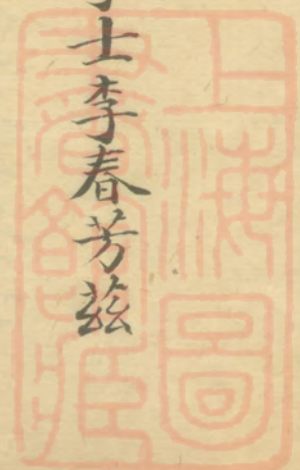 士李春芳茲
上海圖
書館藏